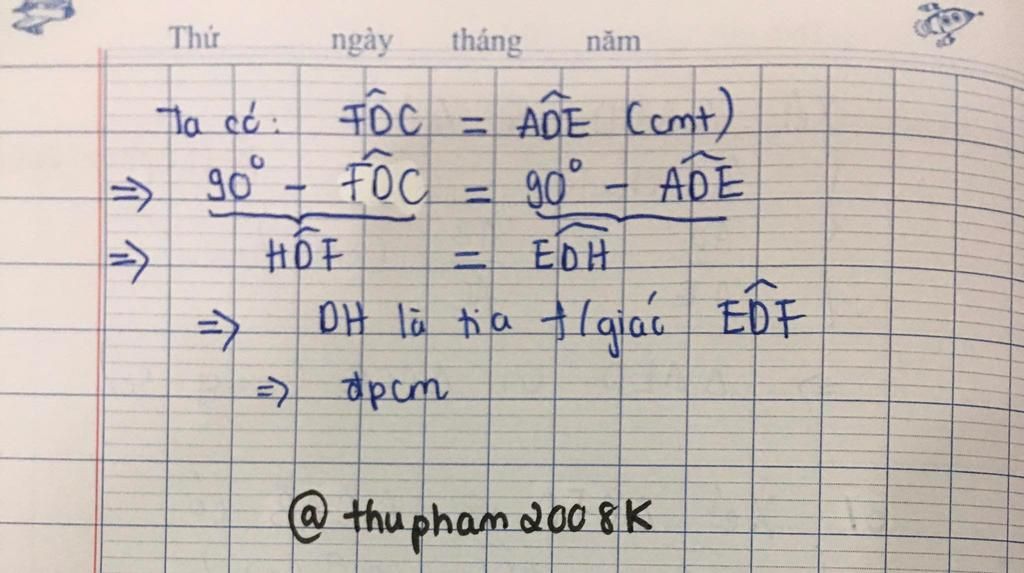 Thứ ngày tháng năm
Ta có: FD̂C = AD̂E (cmt)
=> 90° - FD̂C = 90° - AD̂E
=> HD̂F = ED̂H
=> DH là tia f/giác ED̂F
=> đpcm
@thupham2008K